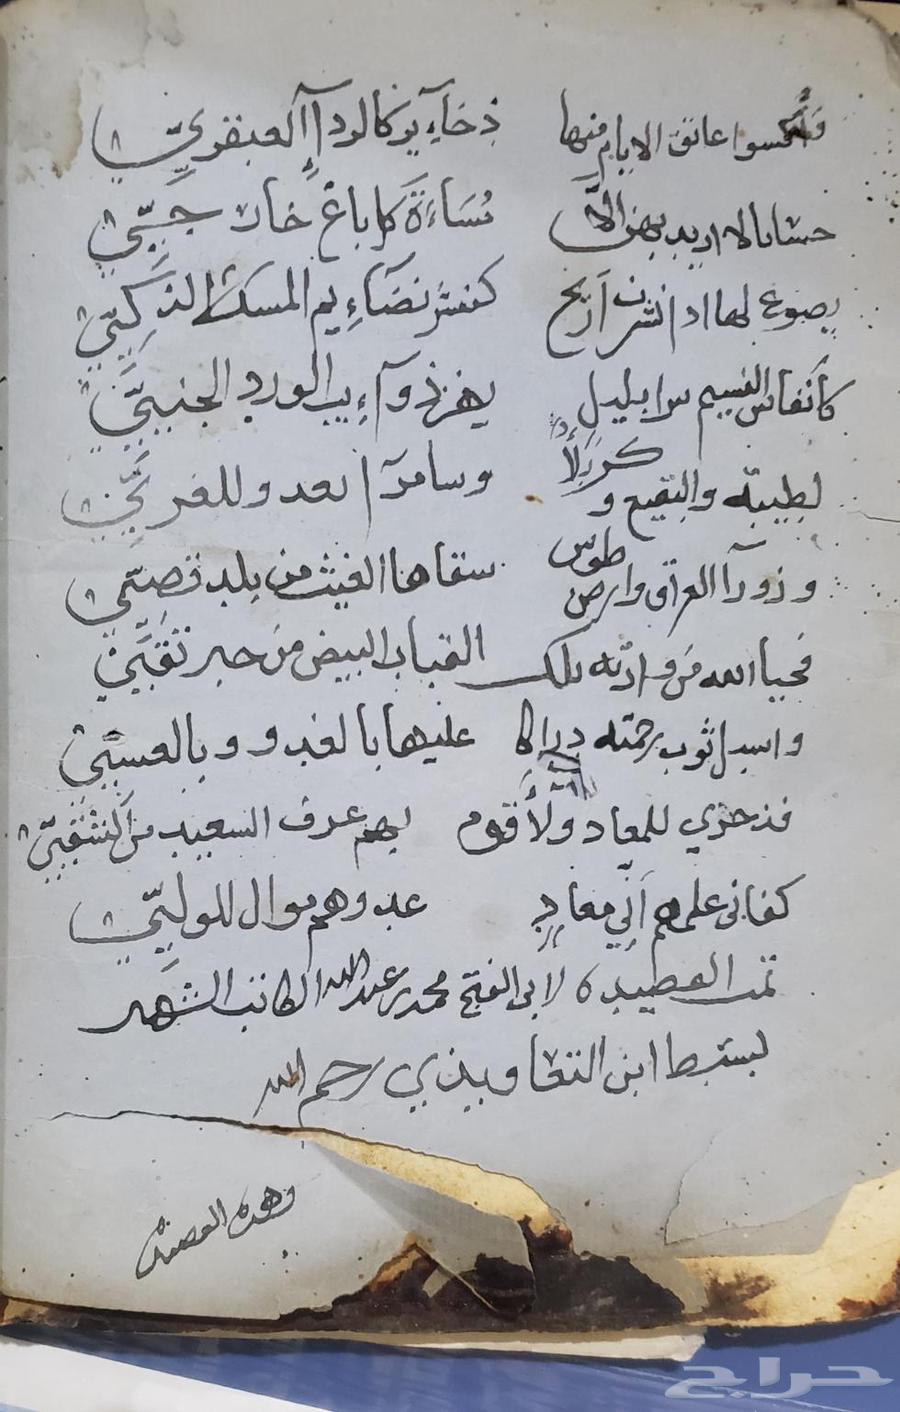 وأكسوا عاتق الايام منها ذخآير كالردآء العبقريّ
حسانا لا اريد بهن الّا مُسَاءَةَ كل باغ خارجيّ
يضوع لها اذا نشرت اريج كنشر نضآءيم المسك الذكيّ
كأنفاس النسيم سرا بليل يهز ذوآءيب الورد الجنيّ
لطيبته والبقيع و كربلآء وسامرآ تعدو للغريّ
وزورآ العراق وارض طوس سقاها الغيث من بلد قصيّ
فحيا الله من وارته تلك القباب البيض من حبر نقيّ
واسبل ثوب رحمته دراكا عليها بالغدو وبالعشيّ
فذخري للمعاد ولآ قوم بهم عرف السعيد من الشقيّ
كفانى علمهم أنّي معاد عدوهم موال للوليّ
تمت القصيده لابى الفتح محمد بن عبد الله الكاتب الشهير
بسبط ابن التعاويذي رحم الله
وهذه القصيده
حراج